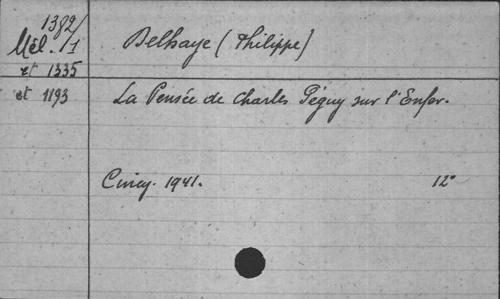 1382/
Mél. /1
et 1335
et 1193
Delhaye (Philippe)
La Pensée de Charles Péguy sur l'Enfer.
Ciney. 1941. 12°